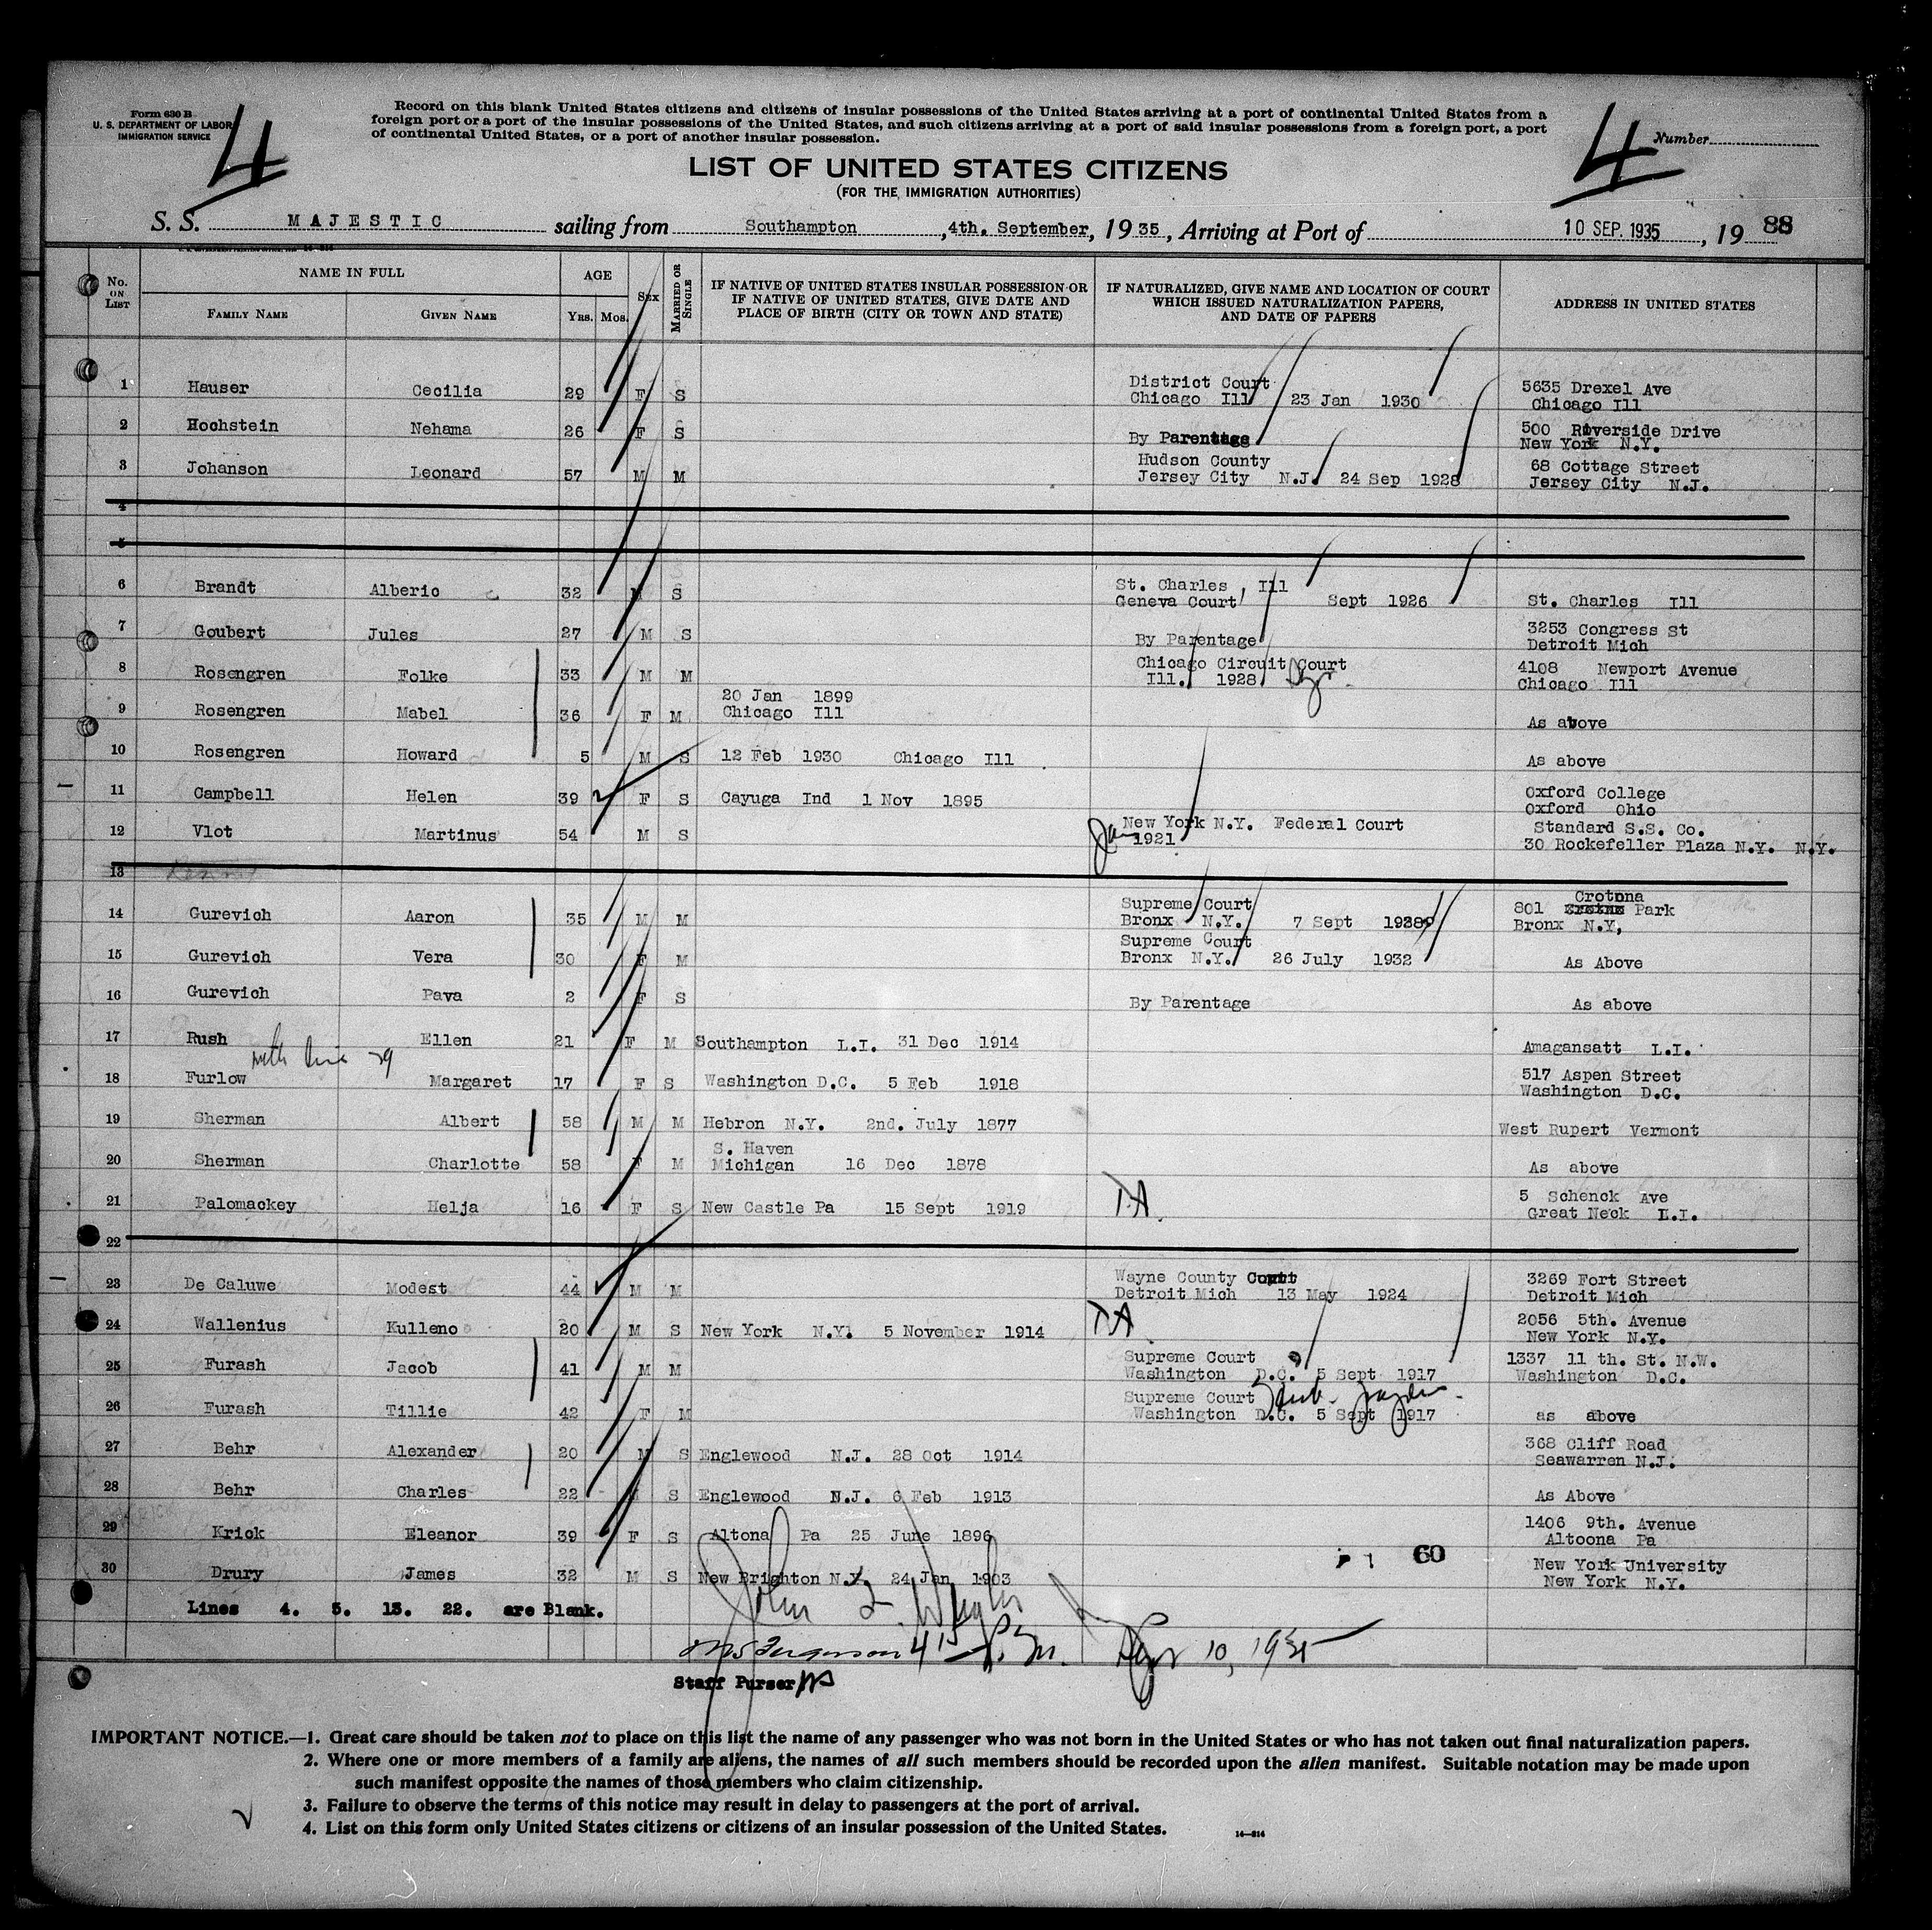 Form 630 B
U. S. DEPARTMENT OF LABOR
IMMIGRATION SERVICE
4
Record on this blank United States citizens and citizens of insular possessions of the United States arriving at a port of continental United States from a
foreign port or a port of the insular possessions of the United States, and such citizens arriving at a port of said insular possessions from a foreign port, a port
of continental United States, or a port of another insular possession.
4
Number
LIST OF UNITED STATES CITIZENS
(FOR THE IMMIGRATION AUTHORITIES)
S. S. MAJESTIC sailing from Southampton, 4th. September, 1935, Arriving at Port of 10 SEP. 1935, 19 88
No. ON LIST
NAME IN FULL
FAMILY NAME
GIVEN NAME
AGE
YRS. MOS.
SEX
MARRIED OR SINGLE
IF NATIVE OF UNITED STATES INSULAR POSSESSION OR
IF NATIVE OF UNITED STATES, GIVE DATE AND
PLACE OF BIRTH (CITY OR TOWN AND STATE)
IF NATURALIZED, GIVE NAME AND LOCATION OF COURT
WHICH ISSUED NATURALIZATION PAPERS,
AND DATE OF PAPERS
ADDRESS IN UNITED STATES
1 Hauser Cecilia 29 F S District Court Chicago Ill 23 Jan 1930 5635 Drexel Ave Chicago Ill
2 Hochstein Nehama 26 F S By Parentage 500 Riverside Drive New York N.Y.
3 Johanson Leonard 57 M M Hudson County Jersey City N.J. 24 Sep 1928 68 Cottage Street Jersey City N.J.
4
5
6 Brandt Alberic 32 M S St. Charles, Ill Geneva Court Sept 1926 St. Charles Ill
7 Goubert Jules 27 M S By Parentage 3253 Congress St Detroit Mich
8 Rosengren Folke 33 M M Chicago Circuit Court Ill. 1928 4108 Newport Avenue Chicago Ill
9 Rosengren Mabel 36 F M 20 Jan 1899 Chicago Ill As above
10 Rosengren Howard 5 M S 12 Feb 1930 Chicago Ill As above
11 Campbell Helen 39 F S Cayuga Ind 1 Nov 1895 Oxford College Oxford Ohio
12 Vlot Martinus 54 M S Jan New York N.Y. Federal Court 1921 Standard S.S. Co. 30 Rockefeller Plaza N.Y. N.Y.
13
14 Gurevich Aaron 35 M M Supreme Court Bronx N.Y. 7 Sept 1928 Crotona 801 Park Bronx N.Y,
15 Gurevich Vera 30 F M Supreme Court Bronx N.Y. 26 July 1932 As Above
16 Gurevich Pava 2 F S By Parentage As above
17 Rush Ellen 21 F M Southampton L.I. 31 Dec 1914 Amagansatt L.I.
18 Furlow Margaret 17 F S Washington D.C. 5 Feb 1918 517 Aspen Street Washington D.C.
19 Sherman Albert 58 M M Hebron N.Y. 2nd. July 1877 West Rupert Vermont
20 Sherman Charlotte 58 F M S. Haven Michigan 16 Dec 1878 As above
21 Palomackey Helja 16 F S New Castle Pa 15 Sept 1919 T.A. 5 Schenck Ave Great Neck L.I.
22
23 De Caluwe Modest 44 M M Wayne County Court Detroit Mich 13 May 1924 3269 Fort Street Detroit Mich
24 Wallenius Kulleno 20 M S New York N.Y. 5 November 1914 TA 2056 5th. Avenue New York N.Y.
25 Furash Jacob 41 M M Supreme Court Washington D.C. 5 Sept 1917 1337 11 th. St. N.W. Washington D.C.
26 Furash Tillie 42 F M Supreme Court Washington D.C. 5 Sept 1917 as above
27 Behr Alexander 20 M S Englewood N.J. 28 Oct 1914 368 Cliff Road Seawarren N.J.
28 Behr Charles 22 M S Englewood N.J. 6 Feb 1913 As Above
29 Krick Eleanor 39 F S Altona Pa 25 June 1896 1406 9th. Avenue Altoona Pa
30 Drury James 32 M S New Brighton N.Y. 24 Jan 1903 New York University New York N.Y.
60
Lines 4. 5. 13. 22. are Blank.
John
Ferguson 4 15 P.M. Sept 10, 1935
Staff Purser
IMPORTANT NOTICE.—1. Great care should be taken not to place on this list the name of any passenger who was not born in the United States or who has not taken out final naturalization papers.
2. Where one or more members of a family are aliens, the names of all such members should be recorded upon the alien manifest. Suitable notation may be made upon
such manifest opposite the names of those members who claim citizenship.
3. Failure to observe the terms of this notice may result in delay to passengers at the port of arrival.
4. List on this form only United States citizens or citizens of an insular possession of the United States.
14—814